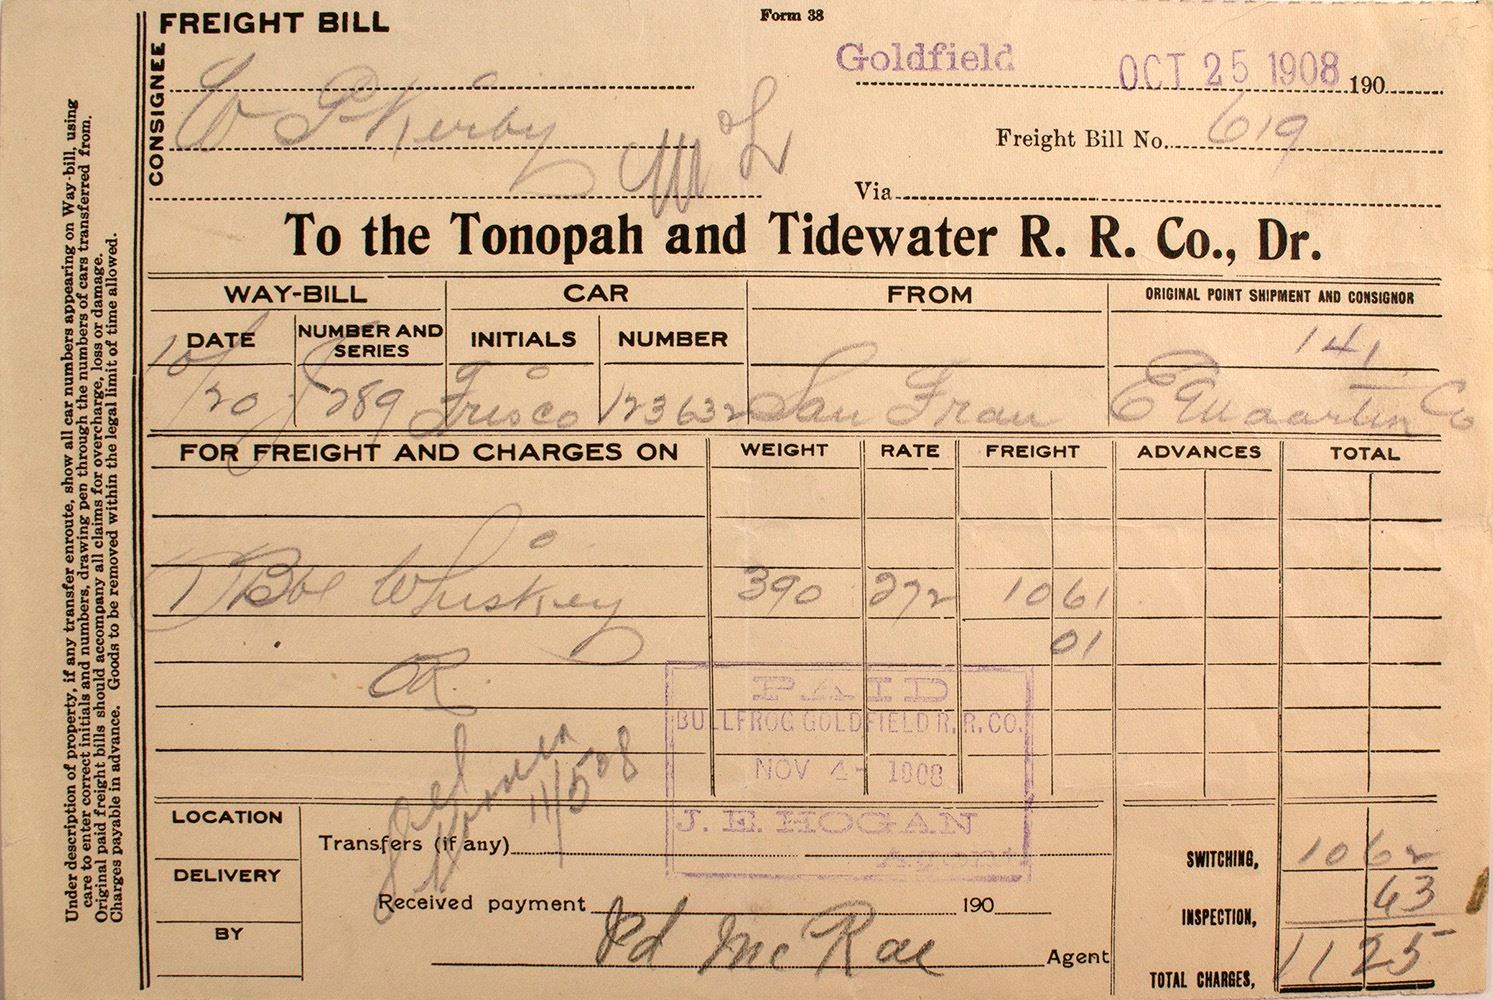 FREIGHT BILL
Form 38
Goldfield OCT 25 1908 190
CONSIGNEE
W P Kirby
Freight Bill No. 619
Via
To the Tonopah and Tidewater R. R. Co., Dr.
WAY-BILL CAR FROM ORIGINAL POINT SHIPMENT AND CONSIGNOR
DATE NUMBER AND SERIES INITIALS NUMBER
141
10/20 J289 Frisco 123632 San Fran E Maartin Co
FOR FREIGHT AND CHARGES ON WEIGHT RATE FREIGHT ADVANCES TOTAL
1 Bbl Whiskey 390 272 10 61
01
OR
PAID
BULLFROG GOLDFIELD R. R. CO.
NOV 4- 1908
J. E. HOGAN
Agent
11/5 08
LOCATION
Transfers (if any)
SWITCHING, 10 62
DELIVERY
Received payment 190
INSPECTION, 63
BY
Pd McRae
Agent
TOTAL CHARGES, 11 25
Under description of property, if any transfer enroute, show all car numbers appearing on Way-bill, using
care to enter correct initials and numbers, drawing pen through the numbers of cars transferred from.
Original paid freight bills should accompany all claims for overcharge, loss or damage.
Charges payable in advance. Goods to be removed within the legal limit of time allowed.